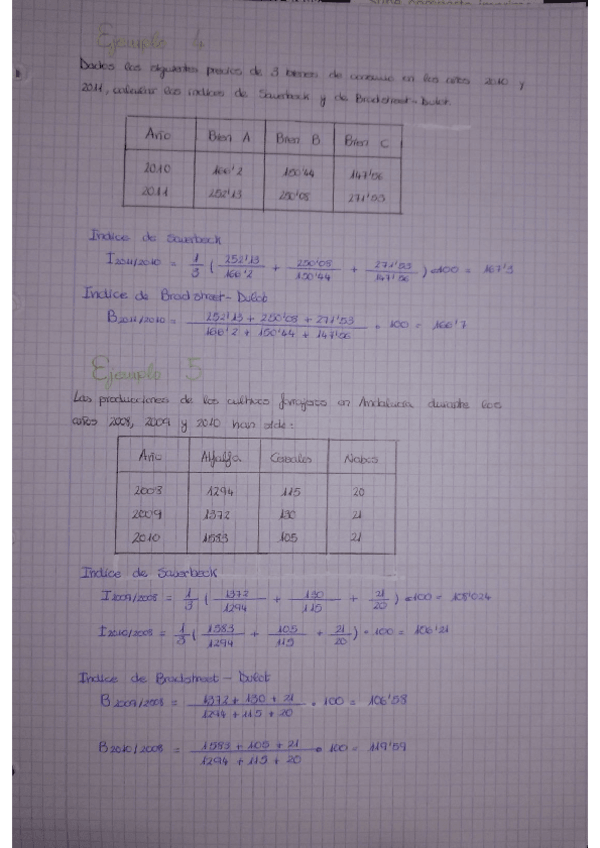 Ejemplo 4
Dados los siguientes precios de 3 bienes de consumo en los años 2010 y
2011, calcular los índices de Sauerbeck y de Bradstreet-Dutot.
Año Bien A Bien B Bien C
2010 166'2 150'44 147'06
2011 252'13 250'08 271'53
Indice de Sauerbeck
I2011/2010 = 1/3 ( 252'13/166'2 + 250'08/150'44 + 271'53/147'06 ) · 100 = 167'3
Indice de Bradstreet - Dutot
B2011/2010 = 252'13 + 250'08 + 271'53 / 166'2 + 150'44 + 147'06 · 100 = 166'7
Ejemplo 5
Las producciones de los cultivos forrajeros en Andalucía durante los
años 2008, 2009 y 2010 han sido:
Año Alfalfa Cereales Nabos
2008 1294 115 20
2009 1372 130 21
2010 1583 105 21
Indice de Sauerbeck
I2009/2008 = 1/3 ( 1372/1294 + 130/115 + 21/20 ) · 100 = 108'024
I2010/2008 = 1/3 ( 1583/1294 + 105/115 + 21/20 ) · 100 = 106'21
Indice de Bradstreet - Dutot
B2009/2008 = 1372 + 130 + 21 / 1294 + 115 + 20 · 100 = 106'58
B2010/2008 = 1583 + 105 + 21 / 1294 + 115 + 20 · 100 = 119'59